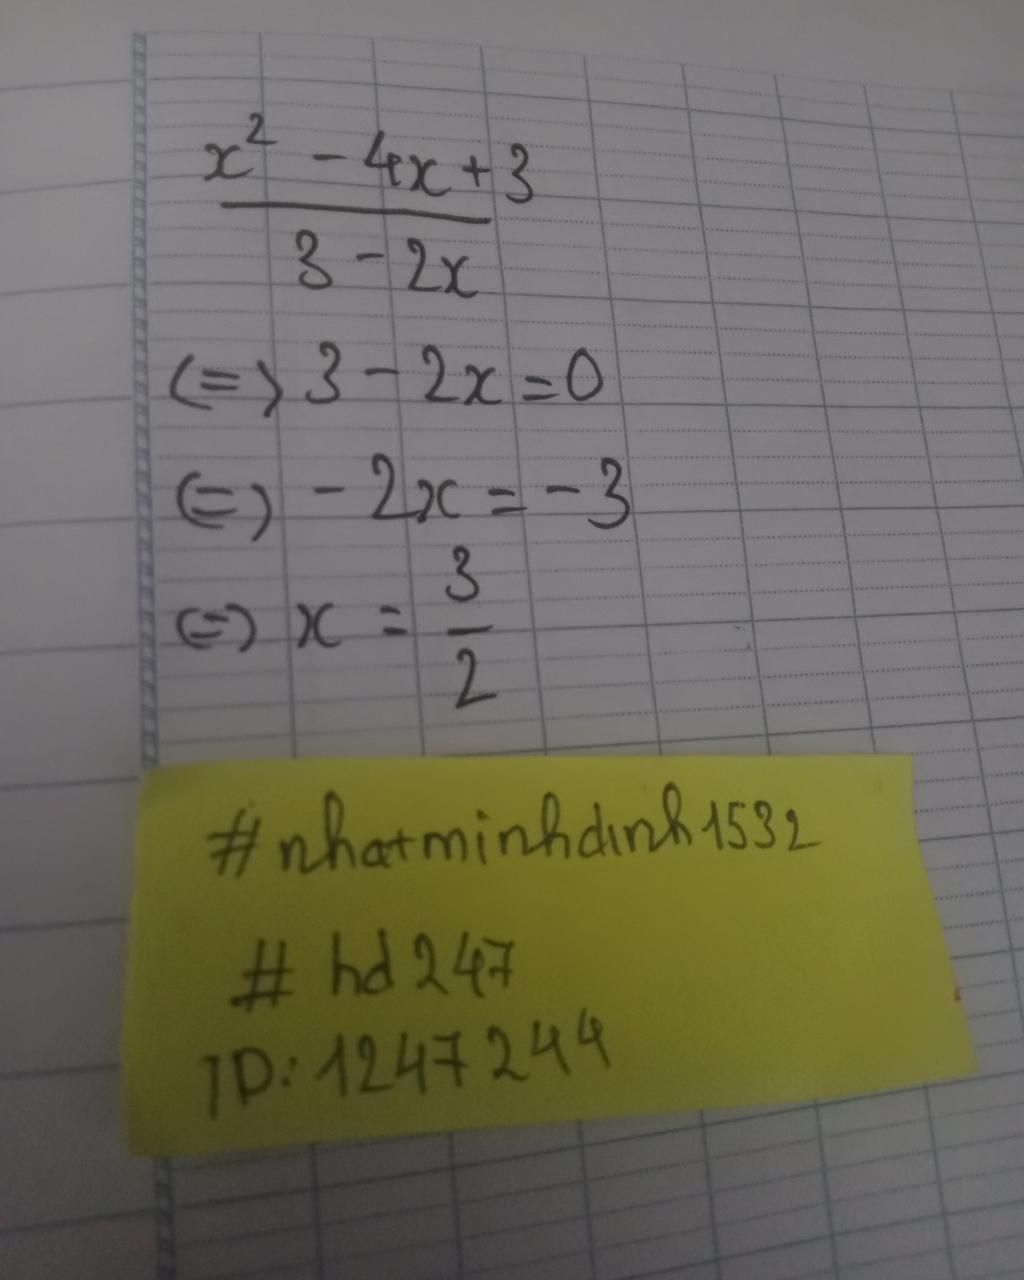 x² - 4x + 3
3 - 2x
(=) 3 - 2x = 0
(=) - 2x = - 3
(=) x = 3/2
#nhatminhdinh1532
# hd247
ID: 1247244